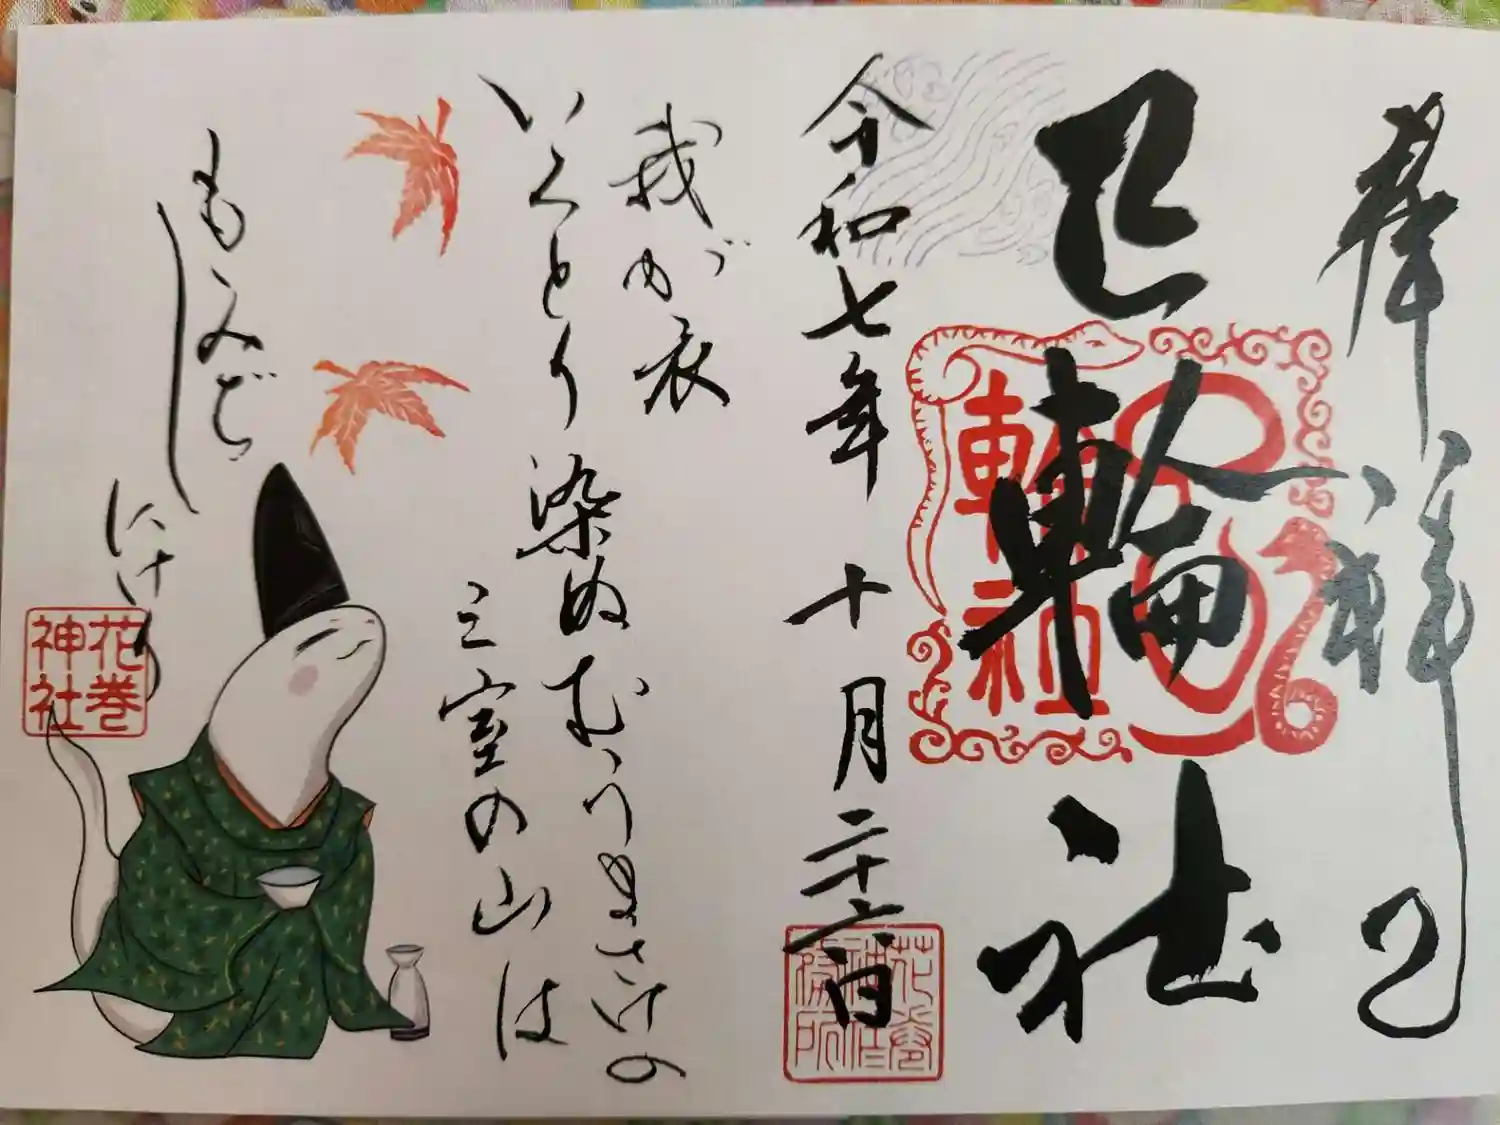 奉拝
巳輪社
令和七年十月二十六日
巳輪社
我が衣
いろとり染めむうまさけの
三室の山は
もみぢし
にけり
花巻
神社